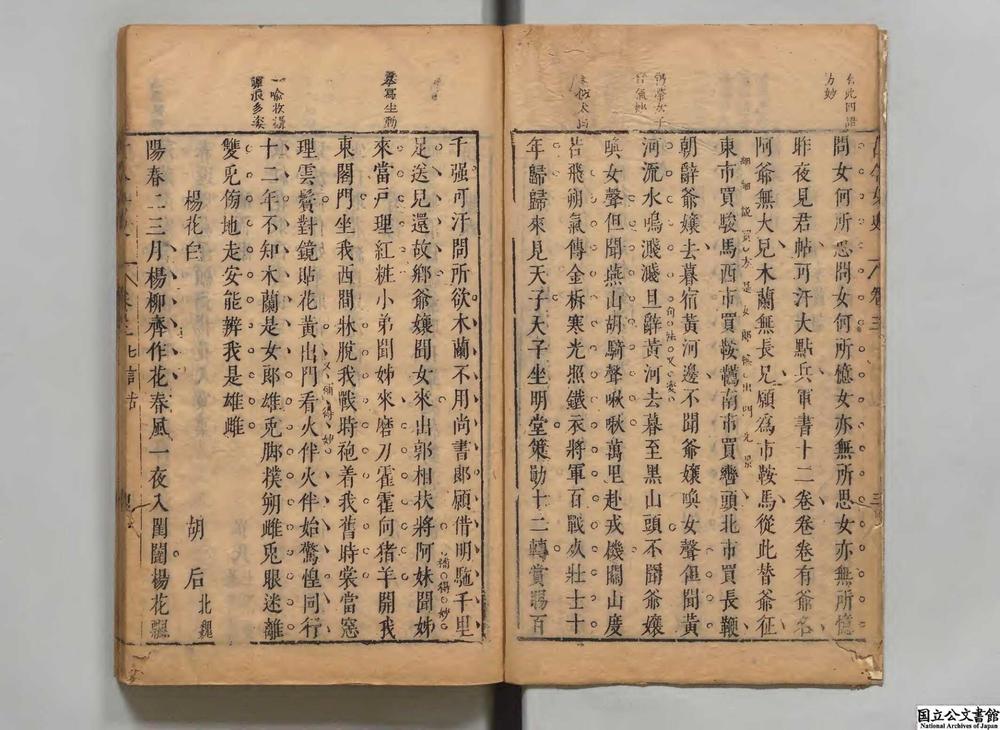 卷三
問女何所思問女何所憶女亦無所思女亦無所憶
昨夜見君帖可汗大點兵軍書十二卷卷卷有爺名
阿爺無大兒木蘭無長兄願爲市鞍馬從此替爺征
細細說買方是女郎出門光景
東市買駿馬西市買鞍韉南市買轡頭北市買長鞭
朝辭爺孃去暮宿黃河邊不聞爺孃喚女聲但聞黃
句法又变
河流水鳴濺濺旦辭黃河去暮至黑山頭不聞爺孃
喚女聲但聞燕山胡騎聲啾啾萬里赴戎機關山度
若飛朔氣傳金柝寒光照鐵衣將軍百戰死壯士十
年歸歸來見天子天子坐明堂策勛十二轉賞賜百
千强可汗問所欲木蘭不用尚書郎願借明駞千里
插得妙
足送兒還故鄉爺孃聞女來出郭相扶將阿妹聞姊
摹寫生動
來當戶理紅粧小弟聞姊來磨刀霍霍向猪羊開我
東閣門坐我西間牀脫我戰時袍着我舊時裳當窓
又補得妙
理雲鬢對鏡貼花黃出門看火伴火伴始驚惶同行
十二年不知木蘭是女郎雄兎脚撲朔雌兎眼迷離
一喻收得
雙兎傍地走安能辨我是雄雌
楊花白 胡后 北魏
陽春二三月楊柳齊作花春風一夜入閨闥楊花飄
国立公文書館
National Archives of Japan